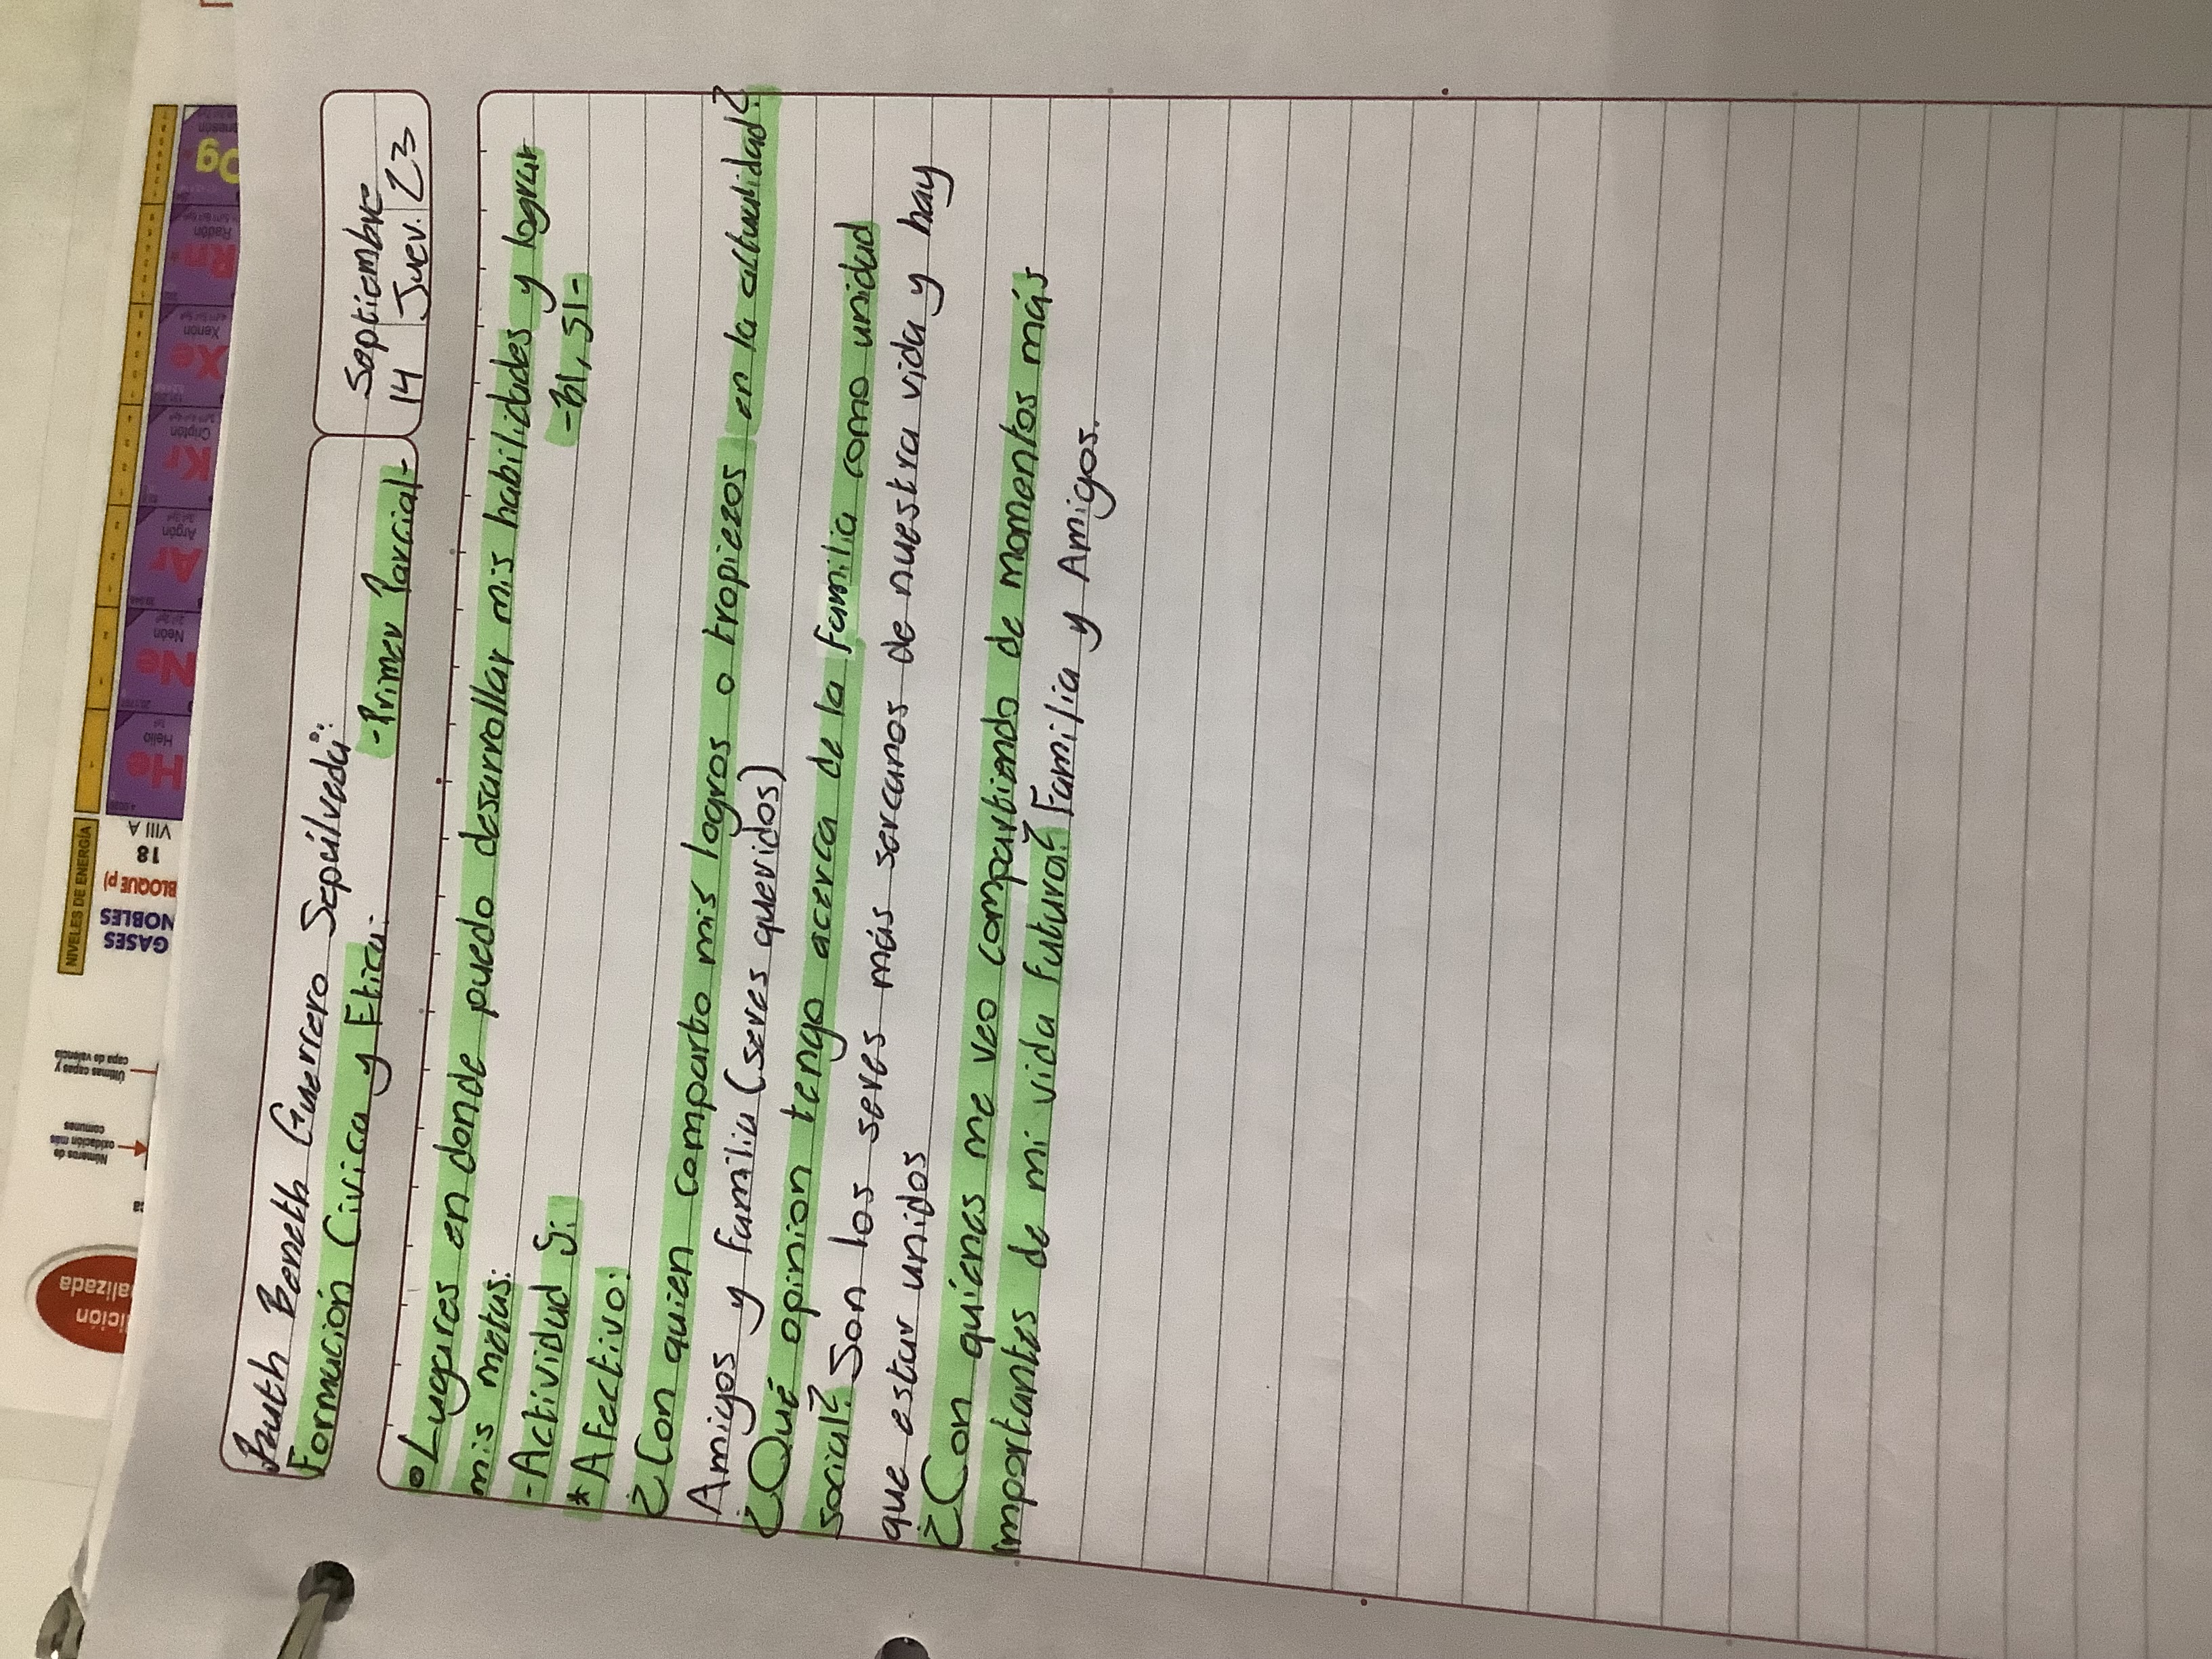 Ruth Beneth Guerrero Sepúlveda:
Formación Civica y Etica:
-Primer Parcial-
Septiembre
14 Juev. 23
• Lugares en donde puedo desarrollar mis habilidades y lograr
mis metas:
-Actividad 5:
-51,52-
* Afectivo:
¿Con quien comparto mis logros o tropiezos en la actualidad?
Amigos y familia (seres queridos)
¿Qué opinion tengo acerca de la familia como unidad
social? Son los seres más sercanos de nuestra vida y hay
que estar unidos
¿Con quiénes me veo compartiendo de momentos más
importantes de mi vida futura? Familia y Amigos.
NIVELES DE ENERGÍA
GASES
NOBLES
BLOQUE p)
18
VIII A
He
Helio
Ne
Neón
Ar
Argón
Kr
Criptón
Xe
Xenón
Rn
Radón
Og
Últimas capas y
capa de valencia
Números de
oxidación más
comunes